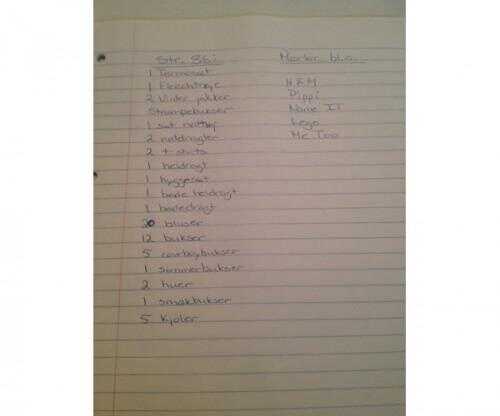 Str. 86:
1 Termosæt
1 Fleecetrøje
2 Vinter jakker
Strømpebukser
1 sæt nattøj
2 natdragter
2 t-shirts
1 heldragt
1 hyggesæt
1 bade heldragt
1 badedragt
20 bluser
12 bukser
5 cowboybukser
1 sommerbukser
2 huer
1 smækbukser
5 kjoler
Mærker bl.a.
H&M
Pippi
Name It
Lego
Me Too